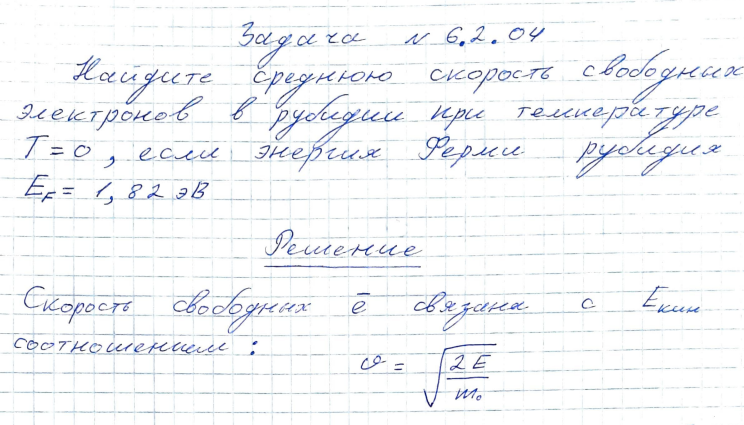 Задача № 6.2.04
Найдите среднюю скорость свободных
электронов в рубидии при температуре
T = 0, если энергия Ферми рубидия
E_F = 1,82 эВ
Решение
Скорость свободных ē связана с E_кин
соотношением:
v = √(2E/m₀)